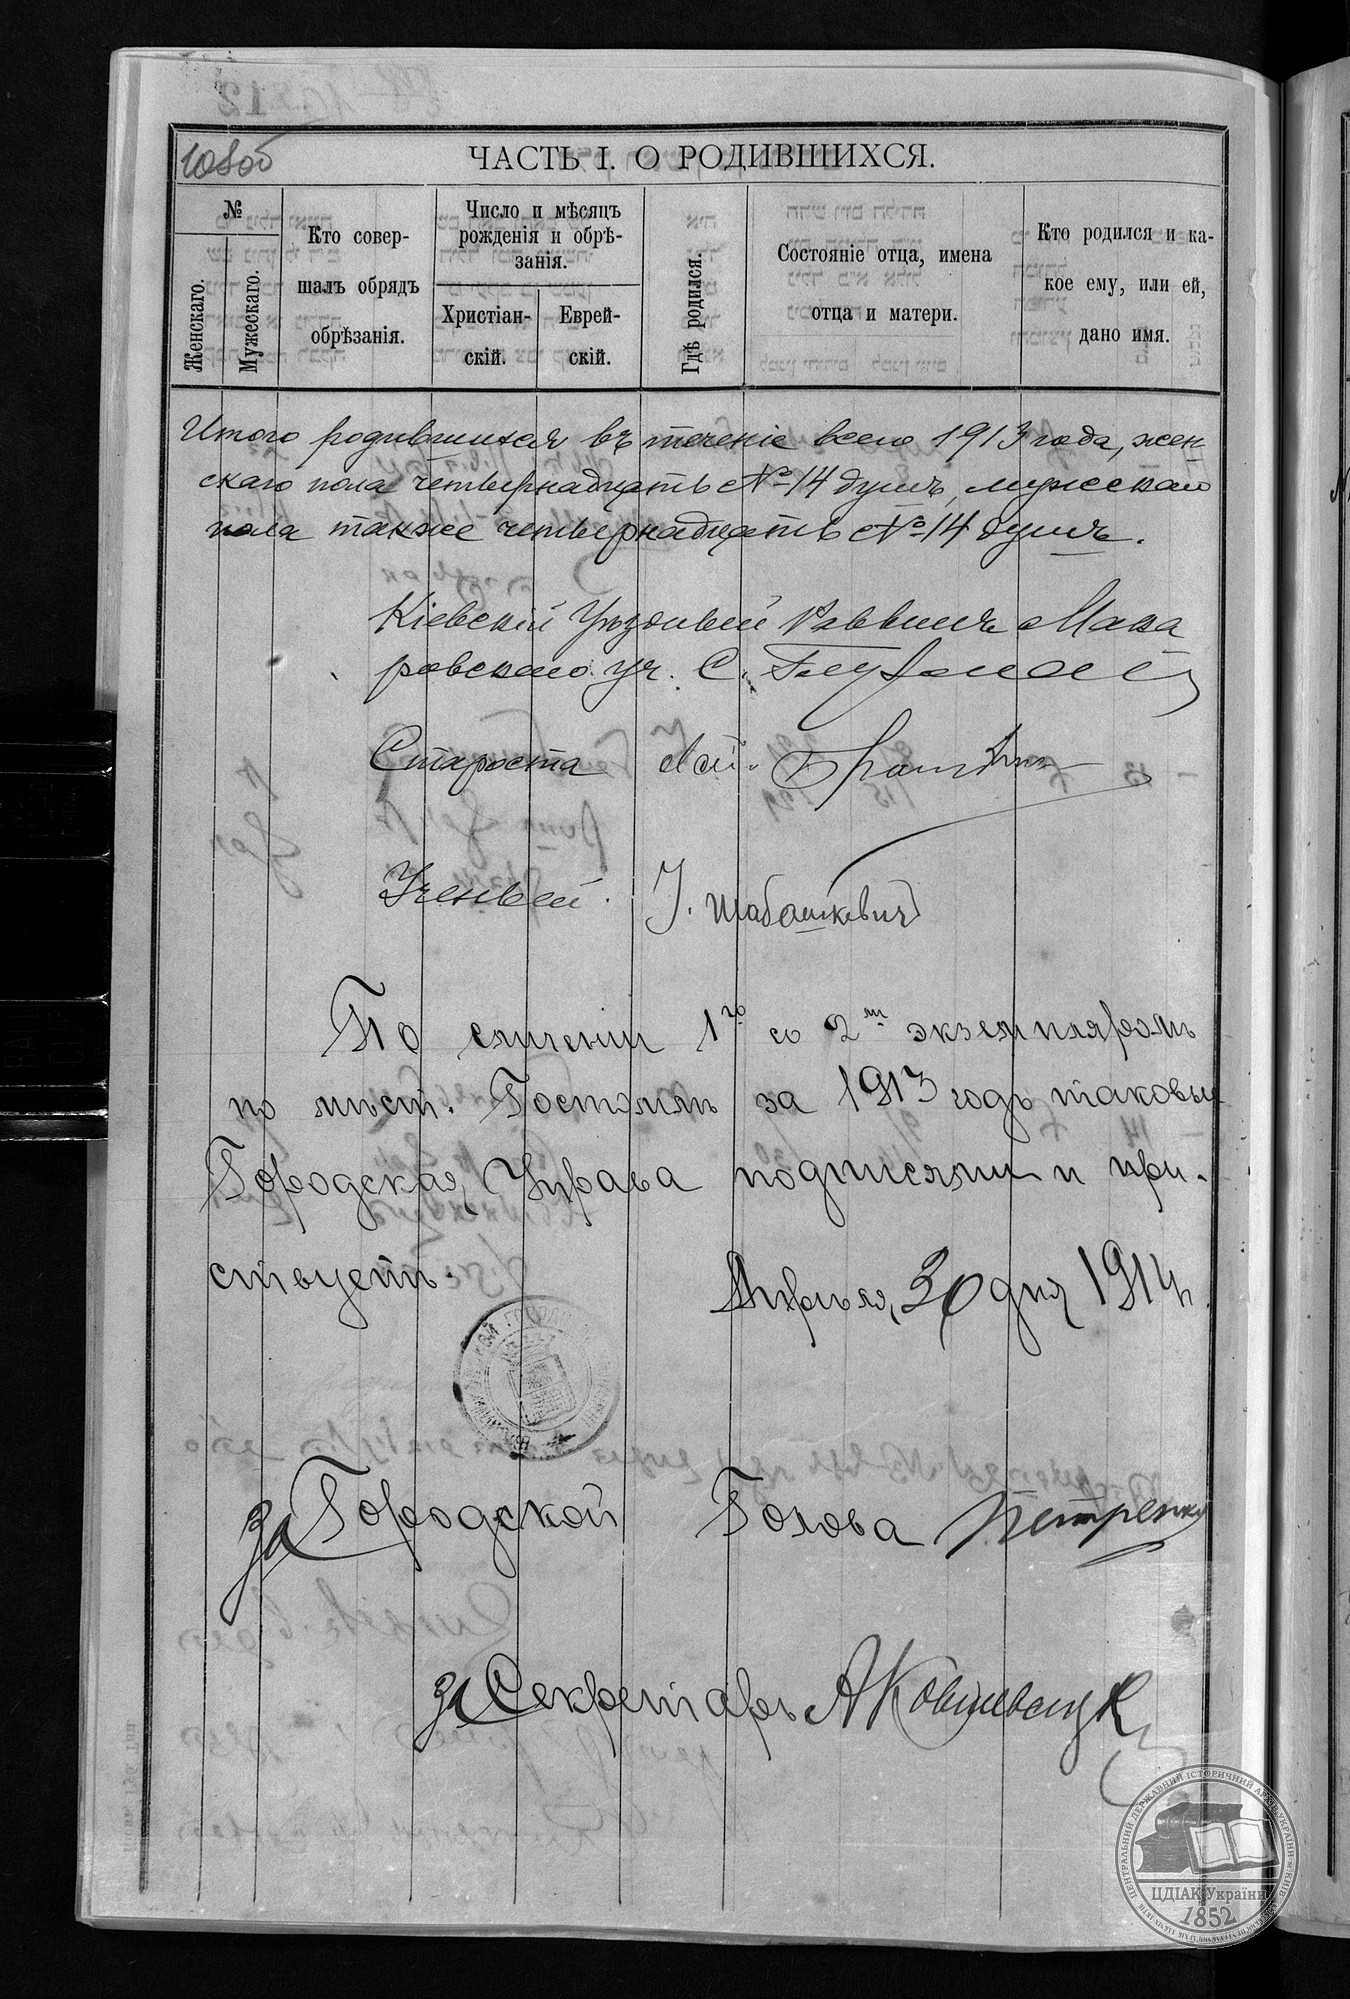 108об
ЧАСТЬ I. О РОДИВШИХСЯ.
№
Женскаго.
Мужескаго.
Кто совер-
шалъ обрядъ
обрѣзанія.
Число и мѣсяцъ
рожденія и обрѣ-
занія.
Христіан-
скій.
Еврей-
скій.
Гдѣ родился.
Состояніе отца, имена
отца и матери.
Кто родился и ка-
кое ему, или ей,
дано имя.
Итого родившихся въ теченіе всего 1913 года, жен
скаго пола четырнадцать № 14 душъ, мужескаго
пола также четырнадцать № 14 душъ.
Кіевскій Уѣздный Раввинъ Мака
ровскаго уч. С.
Староста
Ученый. І. Шабашкевич
По сличеніи 1го со 2м экземпляромъ
по мѣст. Гостомль за 1913 годъ таковые
Городская Управа подписями и при-
ствуетъ.
Апрѣля, 30 дня 1914 г.
за Городской Голова Петренко
за Секретарь
ЦЕНТРАЛЬНИЙ ДЕРЖАВНИЙ ІСТОРИЧНИЙ АРХІВ УКРАЇНИ м. КИЇВ
ЦДІАК України
1852